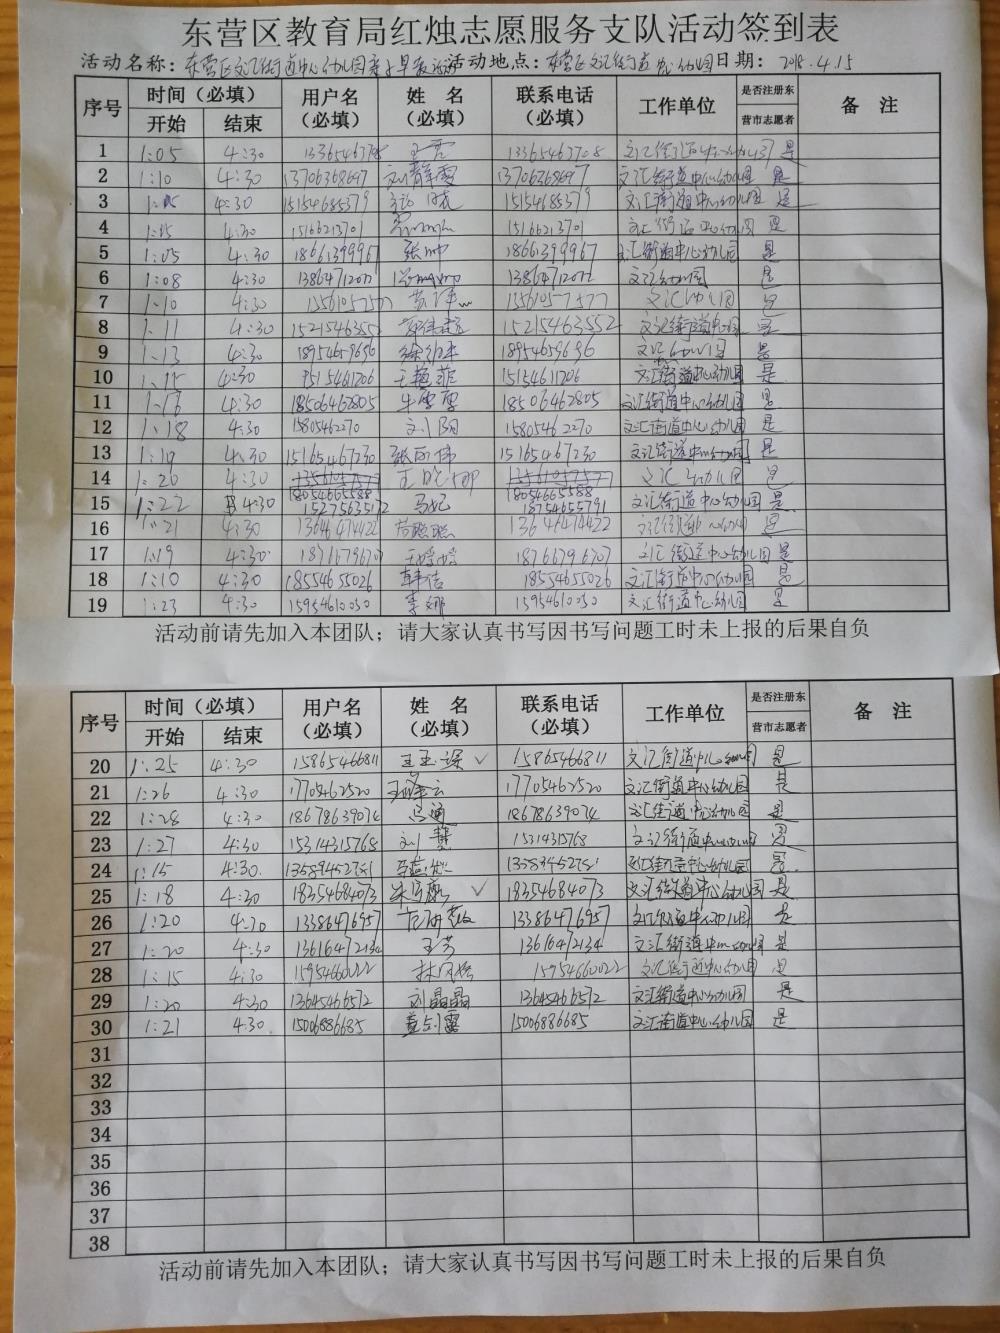 东营区教育局红烛志愿服务支队活动签到表
活动名称：东营区文汇街道中心幼儿园亲子早教活动 活动地点：东营区文汇街道中心幼儿园 日期：2018.4.15
序号 时间（必填） 用户名（必填） 姓 名（必填） 联系电话（必填） 工作单位 是否注册东营市志愿者 备 注
开始 结束
1 1:05 4:30 13365463708 13365463708 是
2 1:10 4:30 13706368697 刘静雯 13706368697 文汇街道中心幼儿园 是
3 4:30 15154685379 15154685379 文汇街道中心幼儿园 是
4 1:15 4:30 15166213701 15166213701 文汇街道中心幼儿园 是
5 1:05 4:30 18661399967 张帅 18661399967 文汇街道中心幼儿园 是
6 1:08 4:30 文汇幼儿园 是
7 1:10 4:30 13561057577 文汇幼儿园 是
8 1:11 4:30 15215463552 15215463552 文汇街道中心园 是
9 1:13 4:30 18954659696 18954659696 文汇幼儿园 是
10 1:15 4:30 15154611206 王艳菲 15154611206 文汇街道中心幼儿园 是
11 4:30 18506462805 牛雪雪 18506462805 文汇街道中心幼儿园 是
12 1:18 4:30 15805462270 刘阳 15805462270 文汇街道中心幼儿园 是
13 1:19 4:30 15165467230 张丽伟 15165467230 文汇街道中心幼儿园 是
14 1:20 4:30 18054665588 王晓娜 18054665588 文汇幼儿园 是
15 1:22 4:30 15275635172 马妃 18754655791 文汇街道中心幼儿园 是
16 1:21 4:30 13646474422 苟聪聪 13646474422 是
17 1:19 4:30 18766796707 王婷婷 18766796707 文汇街道中心幼儿园 是
18 1:10 4:30 18554655026 韩洁 18554655026 文汇街道中心幼儿园 是
19 1:23 4:30 15954610030 李娜 15954610030 文汇街道中心幼儿园 是
活动前请先加入本团队；请大家认真书写因书写问题工时未上报的后果自负
序号 时间（必填） 用户名（必填） 姓 名（必填） 联系电话（必填） 工作单位 是否注册东营市志愿者 备 注
开始 结束
20 1:25 4:30 15865466811 王玉琛 ✓ 15865466811 文汇街道中心幼儿园 是
21 1:26 4:30 17705462520 17705462520 文汇街道中心幼儿园 是
22 1:28 4:30 18678639074 冯阁 18678639074 文汇街道中心幼儿园 是
23 1:27 4:30 15314315768 刘慧 15314315768 文汇街道中心幼儿园 是
24 1:15 4:30 13589452751 13589452751 文汇街道中心幼儿园 是
25 1:18 4:30 18354684073 ✓ 18354684073 文汇街道中心幼儿园 是
26 1:20 4:30 13386476957 13386476957 文汇街道中心幼儿园 是
27 1:20 4:30 13616472134 王芳 13616472134 文汇街道中心幼儿园 是
28 1:15 4:30 15954660022 15954660022 文汇街道中心幼儿园 是
29 1:20 4:30 13645466572 刘晶晶 13645466572 文汇街道中心幼儿园 是
30 1:21 4:30 15006886685 盖剑露 15006886685 文汇街道中心幼儿园 是
31
32
33
34
35
36
37
38
活动前请先加入本团队；请大家认真书写因书写问题工时未上报的后果自负